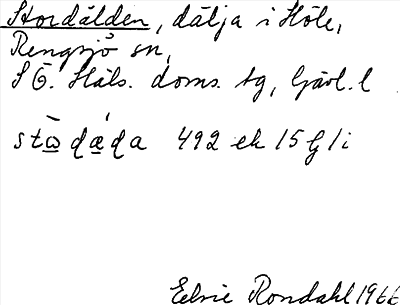 Stordälden, dälja i Höle,
Rengsjö sn,
S Ö. Häls. doms. tg, Gävl. l
492 ek 15 G 1 i
Elvie Rondahl 1966